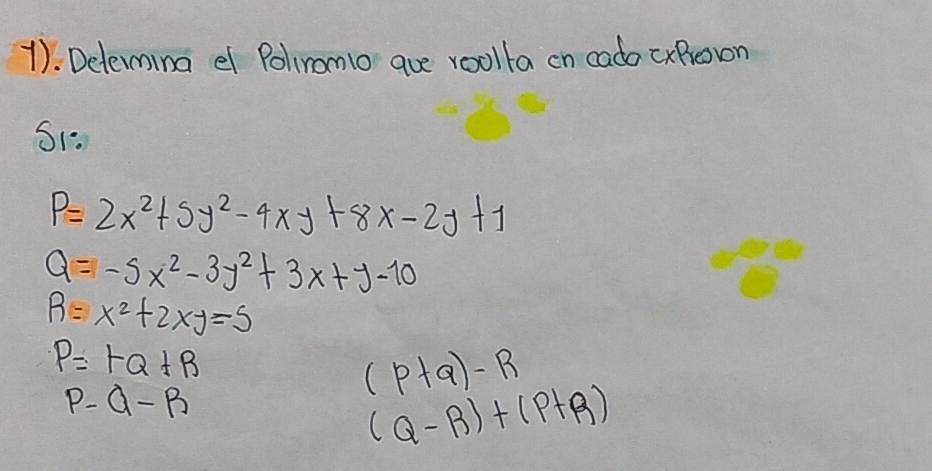 1). Determina el Polinomio que resulta en cada expresion
Si:
P= 2x²+5y²-4xy+8x-2y+1
Q= -5x²-3y²+3x+y-10
R= x²+2xy=5
P= +Q+R
P-Q-R
(P+Q)-R
(Q-R)+(P+R)